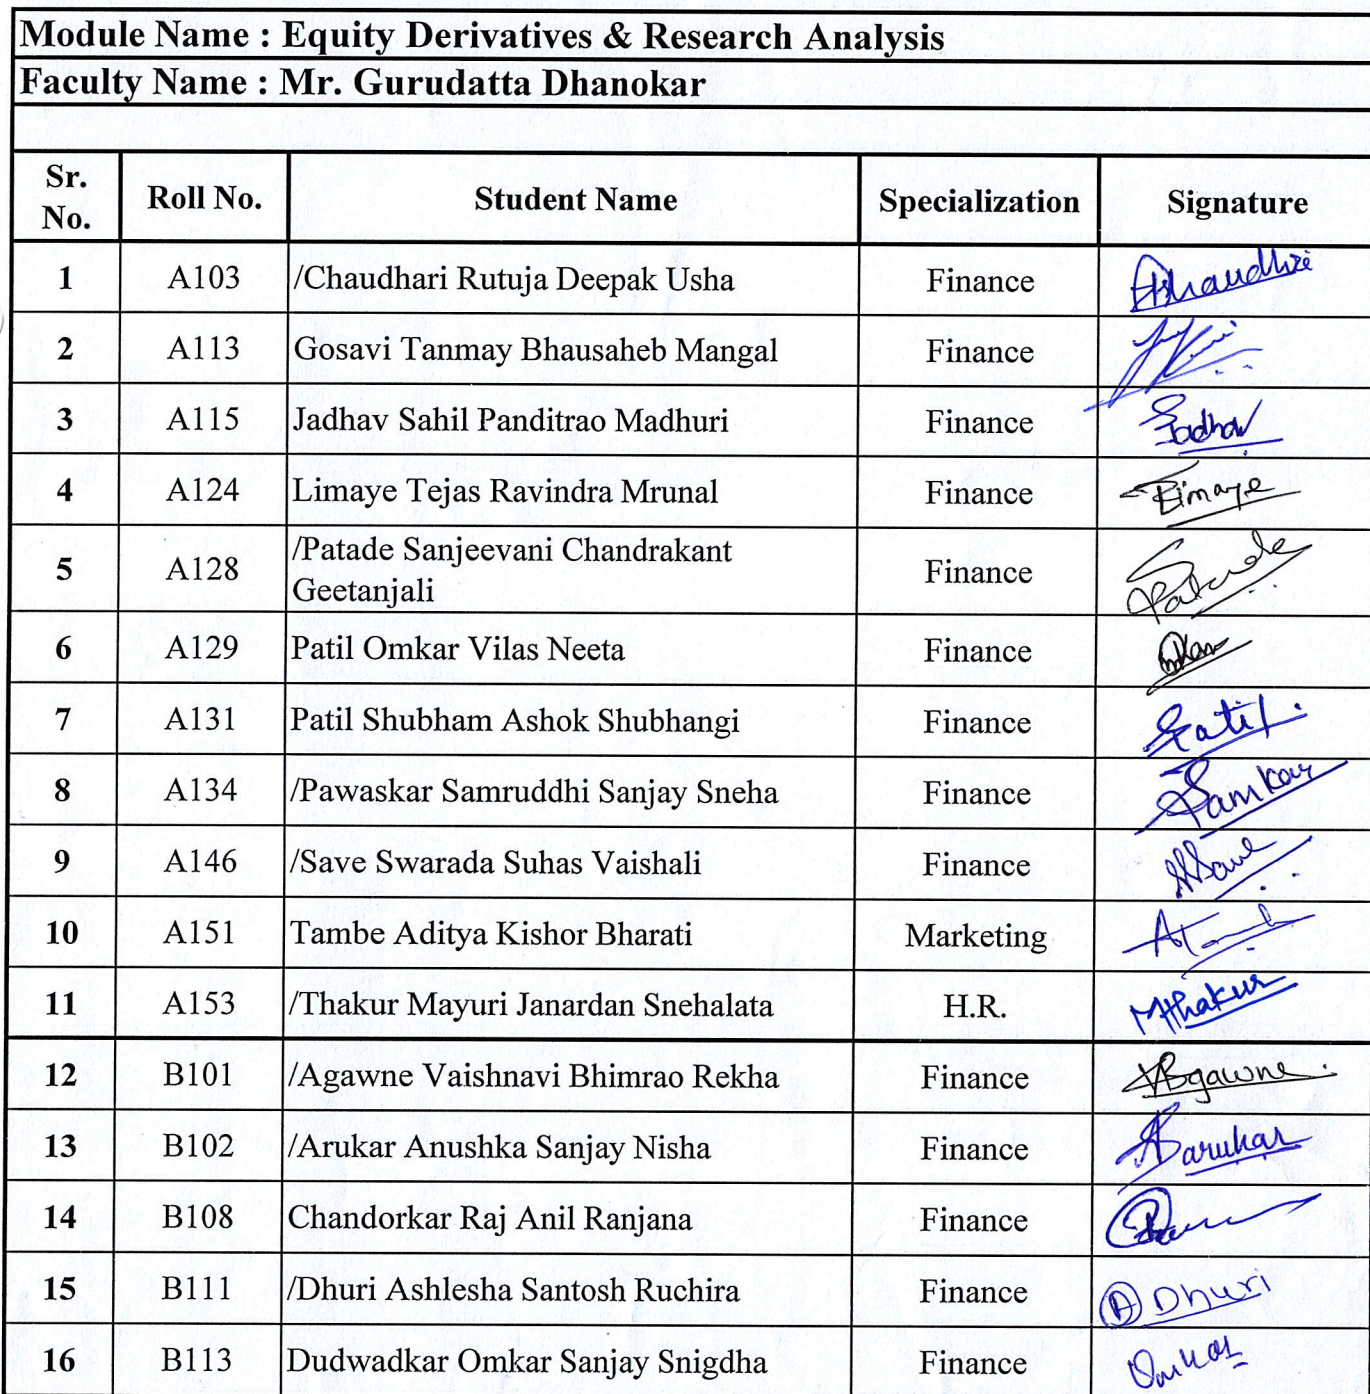 Module Name : Equity Derivatives & Research Analysis
Faculty Name : Mr. Gurudatta Dhanokar
Sr. No. Roll No. Student Name Specialization Signature
1 A103 /Chaudhari Rutuja Deepak Usha Finance
2 A113 Gosavi Tanmay Bhausaheb Mangal Finance
3 A115 Jadhav Sahil Panditrao Madhuri Finance Jadhav
4 A124 Limaye Tejas Ravindra Mrunal Finance Limaye
5 A128 /Patade Sanjeevani Chandrakant Geetanjali Finance Patade
6 A129 Patil Omkar Vilas Neeta Finance
7 A131 Patil Shubham Ashok Shubhangi Finance Patil
8 A134 /Pawaskar Samruddhi Sanjay Sneha Finance
9 A146 /Save Swarada Suhas Vaishali Finance
10 A151 Tambe Aditya Kishor Bharati Marketing
11 A153 /Thakur Mayuri Janardan Snehalata H.R. MThakur
12 B101 /Agawne Vaishnavi Bhimrao Rekha Finance
13 B102 /Arukar Anushka Sanjay Nisha Finance
14 B108 Chandorkar Raj Anil Ranjana Finance
15 B111 /Dhuri Ashlesha Santosh Ruchira Finance A Dhuri
16 B113 Dudwadkar Omkar Sanjay Snigdha Finance Omkar